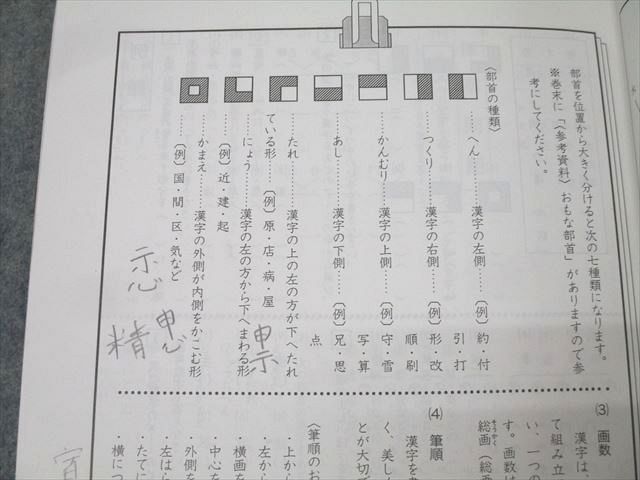 部首を位置から大きく分けると次の七種類になります。
※巻末に「〈参考資料〉おもな部首」がありますので参
考にしてください。
〈部首の種類〉
……へん………漢字の左側……〔例〕約・付
引・打
……つくり………漢字の右側……〔例〕形・改
順・刷
……かんむり……漢字の上側……〔例〕守・雪
写・算
……あし………漢字の下側……〔例〕兄・思
点
……たれ………漢字の上の左の方が下へたれ
ている形……〔例〕原・店・病・屋
……にょう………漢字の左の方から下へまわる形
……〔例〕近・建・起
……かまえ………漢字の外側が内側をかこむ形
……〔例〕国・間・区・気など
申示
示心
申心
精
(3) 画数
漢字は、
て組み立
い、一つの
す。画数は
総画（総画
そうかく
(4) 筆順
漢字を書
く、美しく
とが大切で
〈筆順のお
・上から
・左から
・横画を
・中心を
・外側を
・左はら
・たてに
・横につ